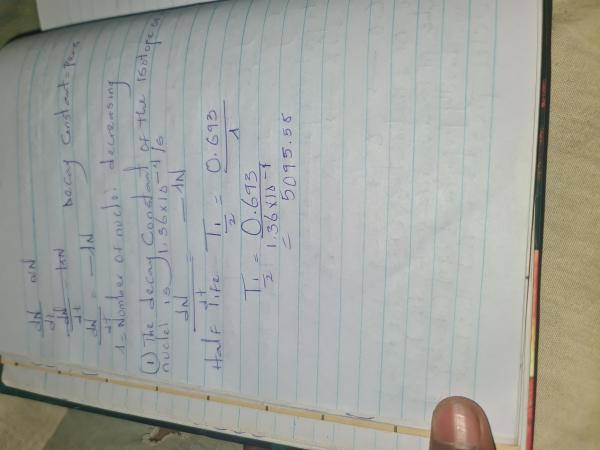 dN/dt αN
dN/dt = kN Decay Constant =
dN/dt = -λN
λ = Number of nuclei decreasing
① The decay Constant of the isotope
nuclei is 1.36x10⁻⁴/s
dN/dt = -λN
Half Life T1/2 = 0.693/λ
T1/2 = 0.693/1.36x10⁻⁴
= 5095.5s